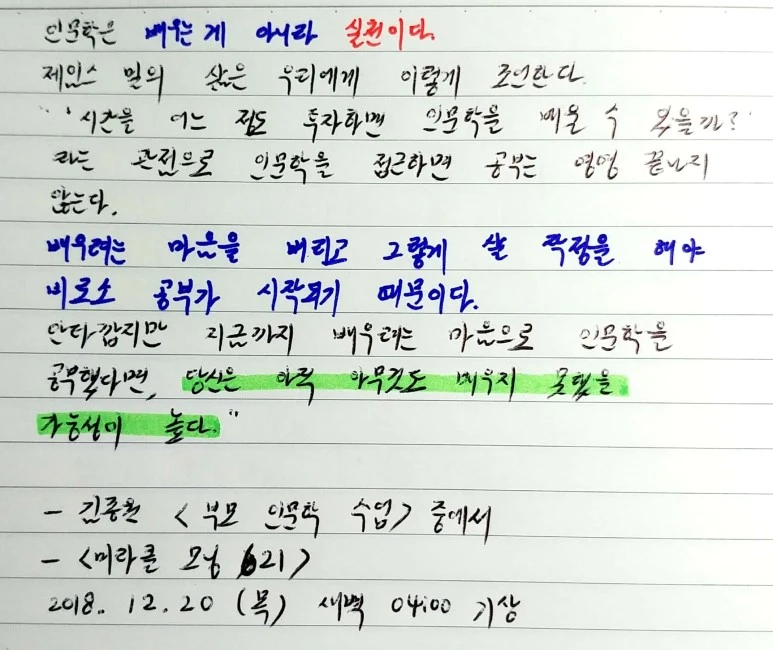 인문학은 배우는 게 아니라 실천이다.
제임스 밀의 삶은 우리에게 이렇게 조언한다.
"'시간을 어느 정도 투자하면 인문학을 배울 수 있을까?'
라는 관점으로 인문학을 접근하면 공부는 영영 끝나지
않는다.
배우려는 마음을 버리고 그렇게 살 작정을 해야
비로소 공부가 시작되기 때문이다.
안타깝지만 지금까지 배우려는 마음으로 인문학을
공부했다면, 당신은 아직 아무것도 배우지 못했을
가능성이 높다."
- 김종원 <부모 인문학 수업> 중에서
- <미라클 모닝 621>
2018. 12. 20 (목) 새벽 04:00 기상